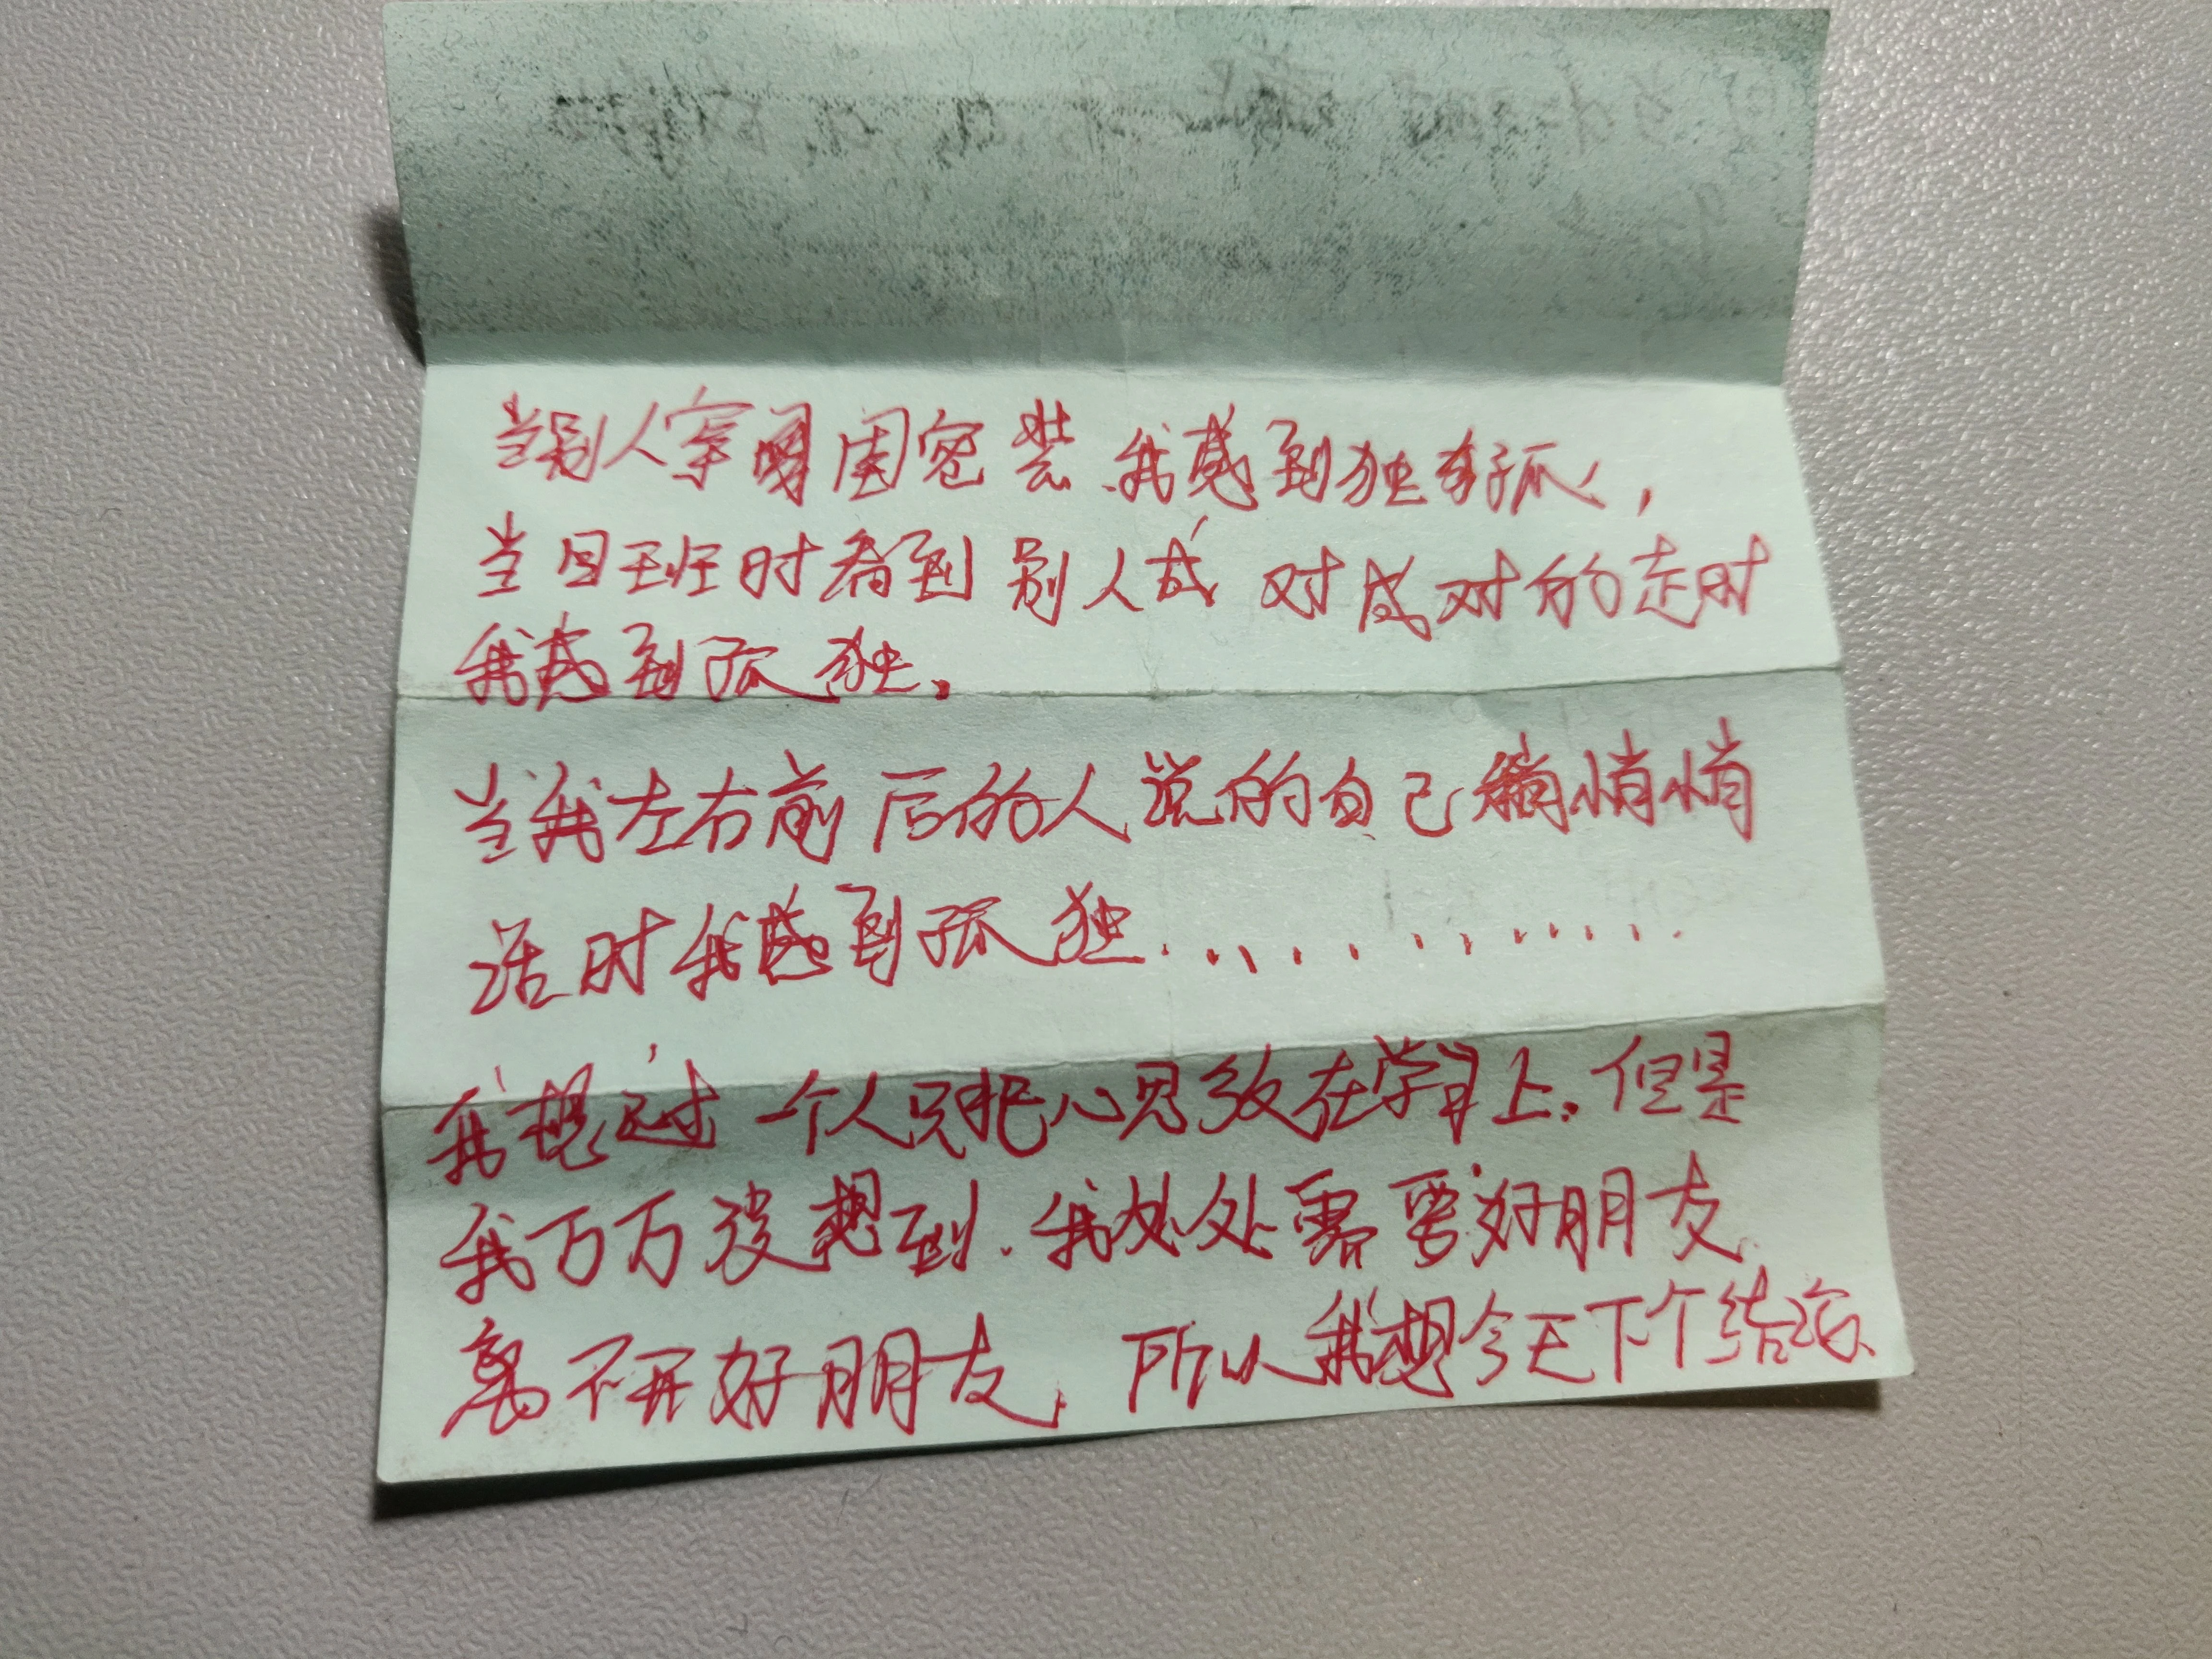 当别人穿闺密装.我感到独孤,
当回班时看到别人成对成对的走时
我感到孤独.
当我左右前后的人说的自己悄悄
话时我感到孤独............
我想过一个人只把心思放在学习上.但是
我万万没想到.我处处需要好朋友.
离不开好朋友,所以我想今天下个结论